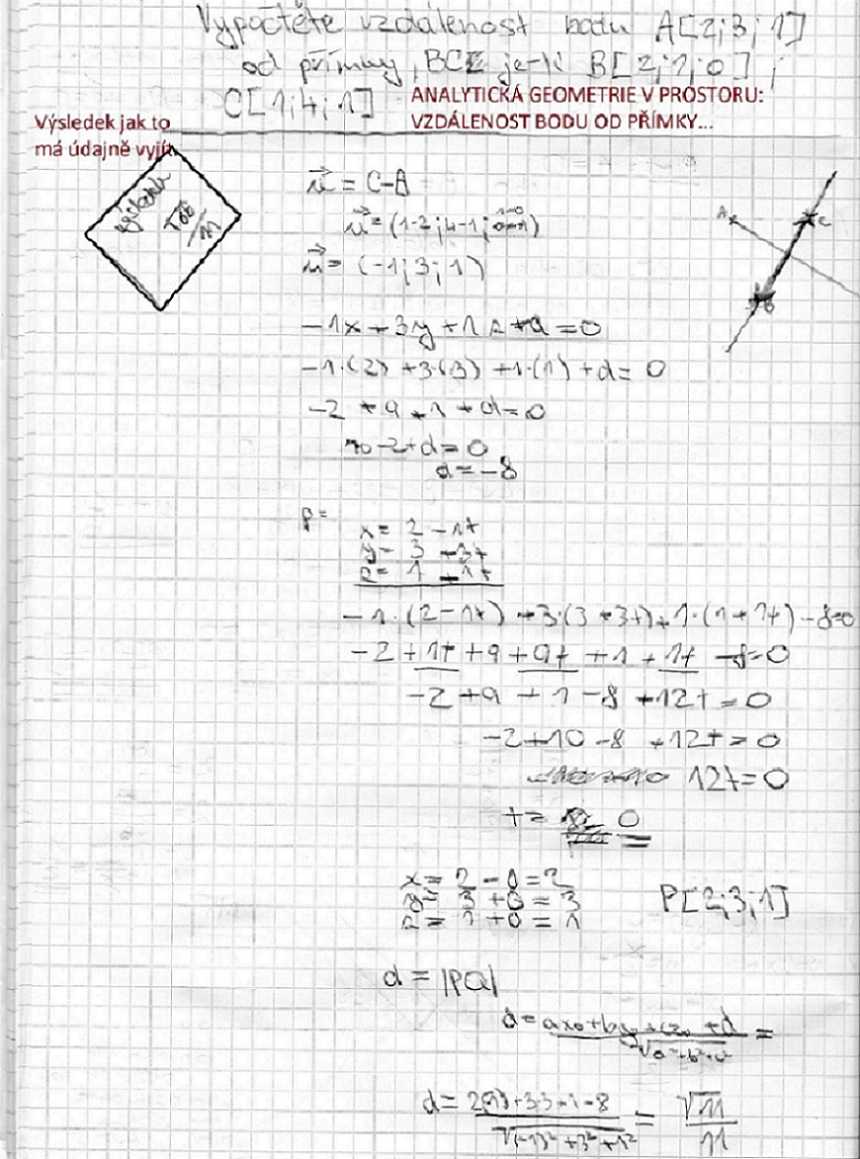 Vypočtěte vzdálenost bodu A[2;3;1]
od přímky, BC je-li B[2;1;0];
C[1;4;1]
ANALYTICKÁ GEOMETRIE V PROSTORU:
VZDÁLENOST BODU OD PŘÍMKY...
Výsledek jak to
má údajně vyjít
√66
11
A
C
B
u = C-B
u = (1-2; 4-1; 1-0)
u = (-1; 3; 1)
-1x + 3y + 1z + d = 0
-1·(2) + 3·(3) + 1·(1) + d = 0
-2 + 9 + 1 + d = 0
10-2+d = 0
d = -8
p =
x = 2 - 1t
y = 3 + 3t
z = 1 + 1t
-1·(2-1t) + 3·(3+3t) + 1·(1+1t) - 8=0
-2 + 1t + 9 + 9t + 1 + 1t - 8=0
-2 + 9 + 1 - 8 + 12t = 0
-2 + 10 - 8 + 12t = 0
12t = 0
t = 0
x = 2 - 0 = 2
y = 3 + 0 = 3
z = 1 + 0 = 1
P[2;3;1]
d = |PA|
d = ax₀ + by₀ + cz₀ + d =
√a²+b²+c²
√11
11